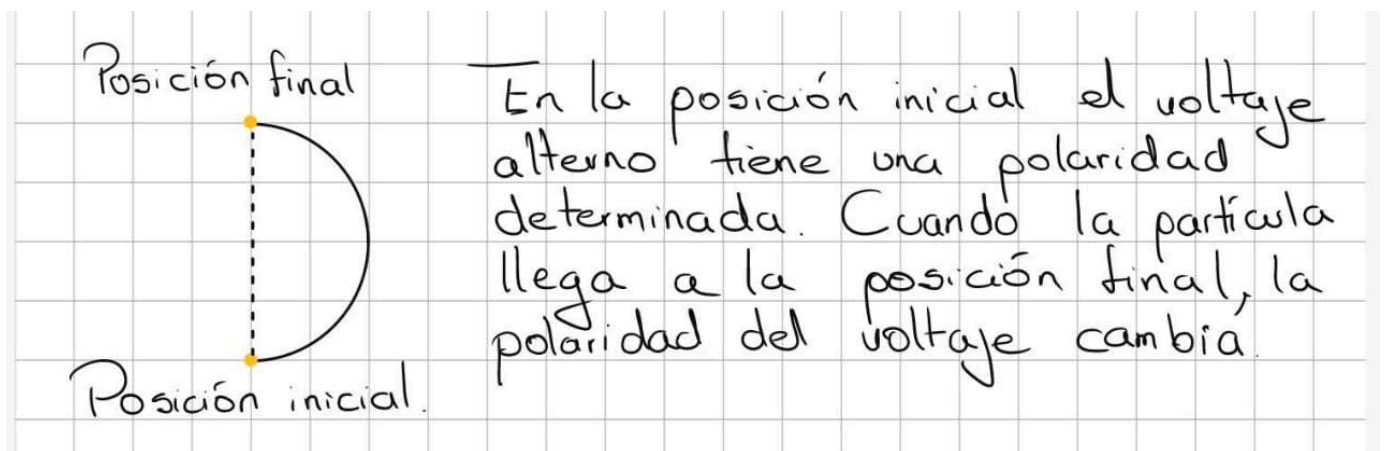 Posición final
En la posición inicial el voltaje
alterno tiene una polaridad
determinada. Cuando la partícula
llega a la posición final, la
polaridad del voltaje cambia.
Posición inicial.